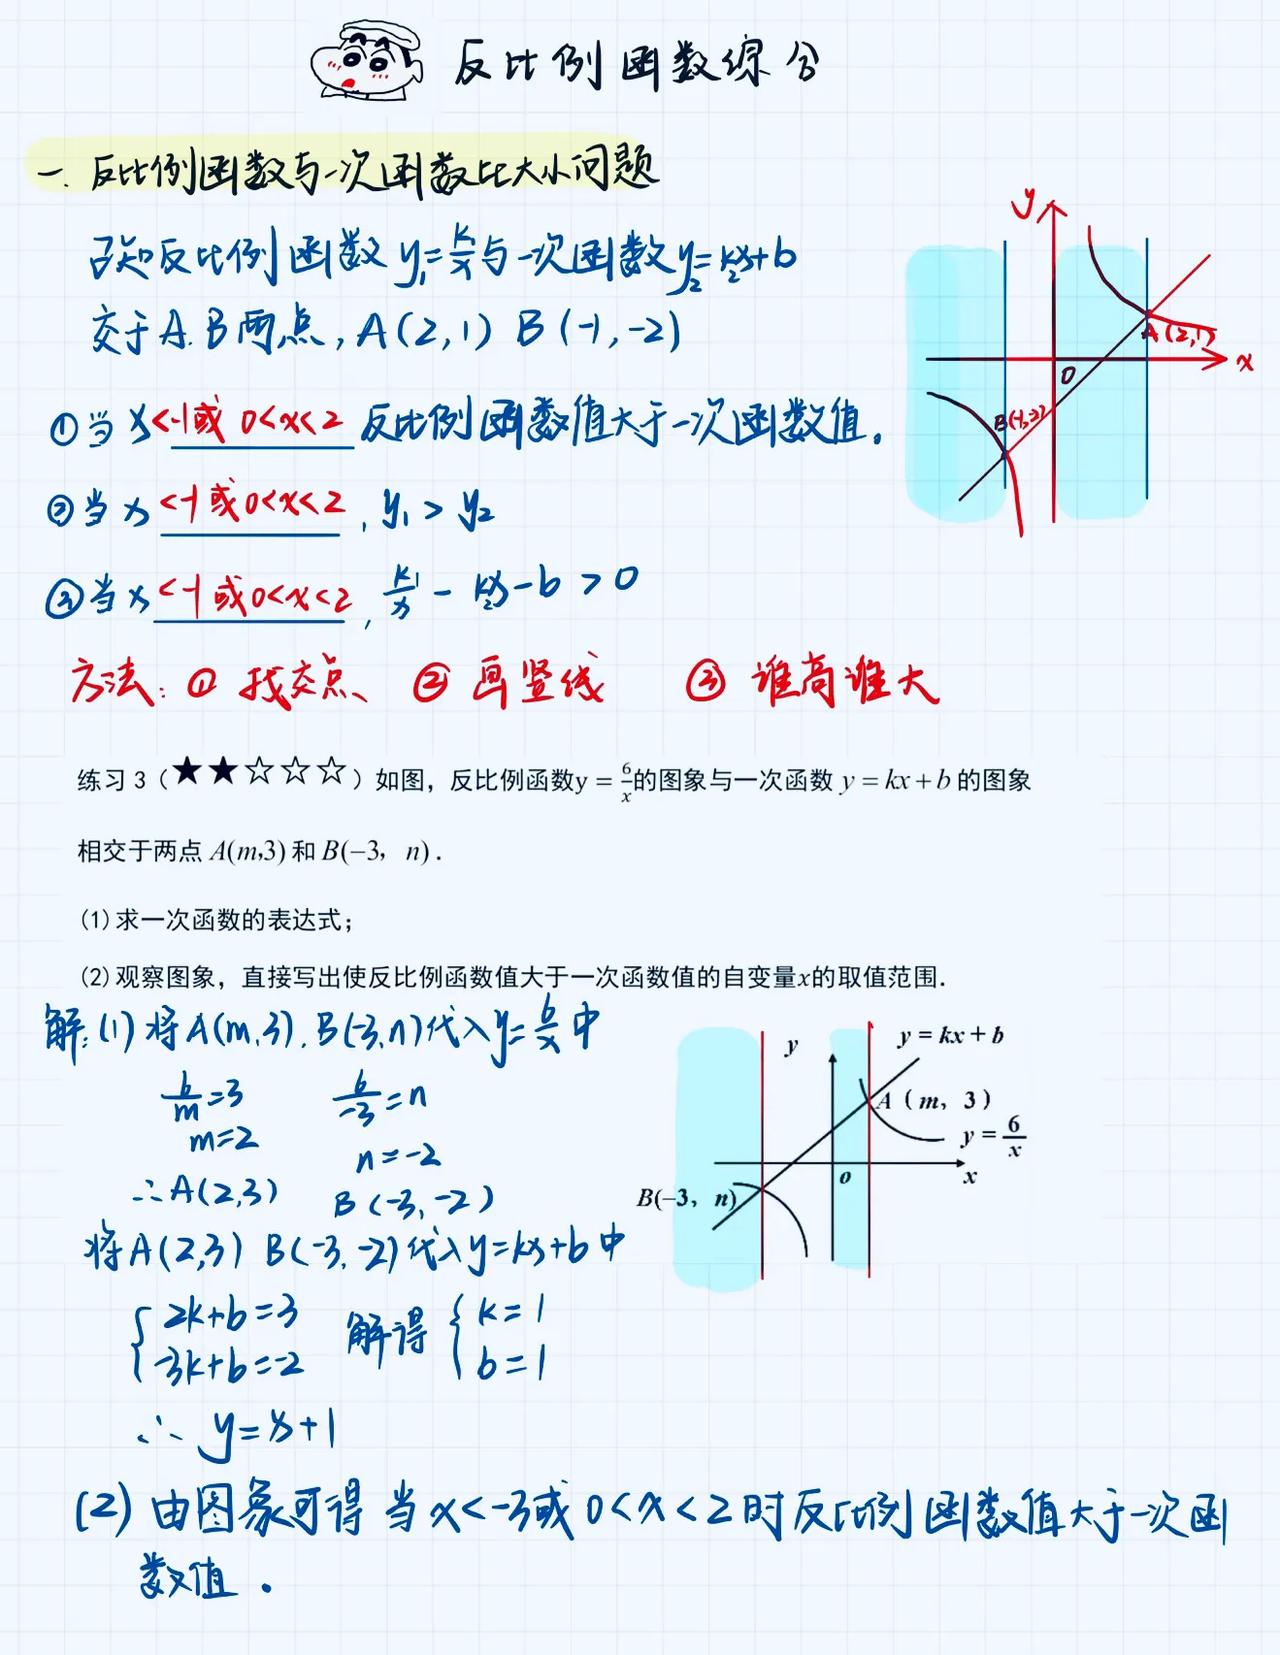 反比例函数综合
一. 反比例函数与一次函数比大小问题
已知反比例函数 y₁=k₁/x 与一次函数 y₂=k₂x+b
交于A.B两点, A(2,1) B(-1,-2)
①当 x<-1或 0<x<2 反比例函数值大于一次函数值.
②当 x <-1或0<x<2, y₁ > y₂
③当 x <-1或0<x<2, k₁/x - k₂x - b > 0
方法: ① 找交点 ② 画竖线 ③ 谁高谁大
y
A(2,1)
x
O
B(-1,-2)
练习 3 (★★☆☆☆) 如图, 反比例函数y = 6/x的图象与一次函数 y = kx + b 的图象
相交于两点 A(m,3) 和 B(−3, n) .
(1) 求一次函数的表达式;
(2) 观察图象, 直接写出使反比例函数值大于一次函数值的自变量x的取值范围.
解: (1) 将A(m,3). B(-3,n)代入y=6/x中
6/m=3 6/-3=n
m=2 n=-2
∴A(2,3) B(-3,-2)
将A(2,3) B(-3,-2)代入y=kx+b中
{2k+b=3 解得 {k=1
-3k+b=-2 b=1
∴ y=x+1
y
y = kx + b
A (m, 3)
y = 6/x
x
o
B(−3, n)
(2) 由图象可得 当x<-3或 0<x<2时反比例函数值大于一次函
数值.